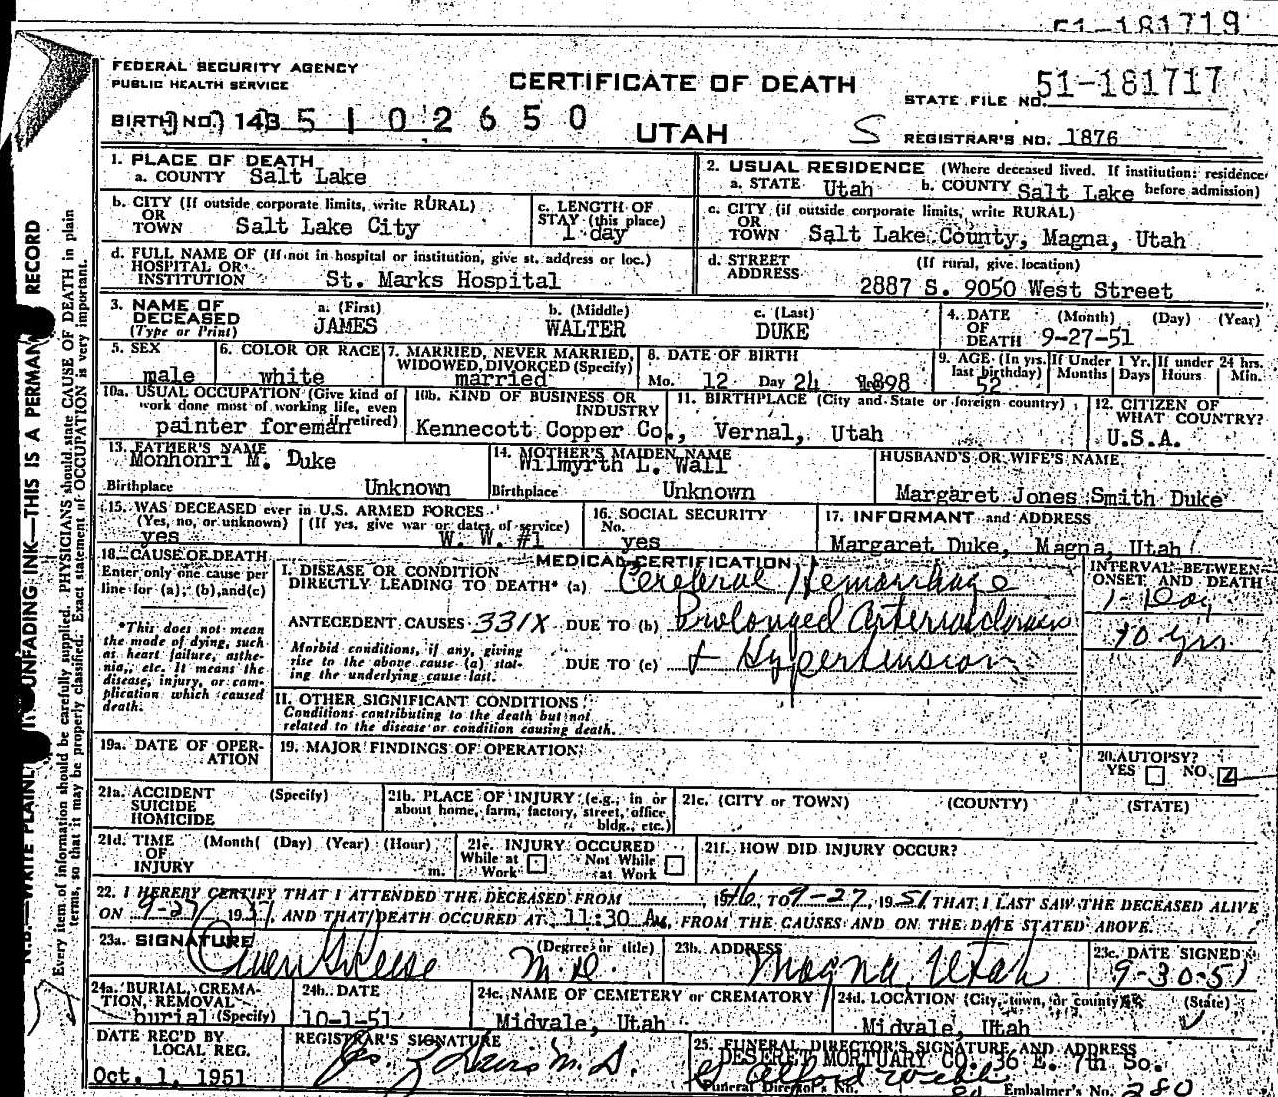 51-181719
FEDERAL SECURITY AGENCY
PUBLIC HEALTH SERVICE
CERTIFICATE OF DEATH
STATE FILE NO. 51-181717
BIRTH NO. 143 5 1 0 2 6 5 0
UTAH
S
REGISTRAR'S NO. 1876
1. PLACE OF DEATH
a. COUNTY Salt Lake
2. USUAL RESIDENCE (Where deceased lived. If institution: residence before admission)
a. STATE Utah b. COUNTY Salt Lake
b. CITY (If outside corporate limits, write RURAL)
OR
TOWN Salt Lake City
c. LENGTH OF
STAY (this place)
1 day
c. CITY (if outside corporate limits, write RURAL)
OR
TOWN Salt Lake County, Magna, Utah
d. FULL NAME OF (If not in hospital or institution, give st. address or loc.)
HOSPITAL OR
INSTITUTION St. Marks Hospital
d. STREET (If rural, give location)
ADDRESS 2887 S. 9050 West Street
3. NAME OF DECEASED
(Type or Print)
a. (First) JAMES
b. (Middle) WALTER
c. (Last) DUKE
4. DATE OF DEATH (Month) (Day) (Year)
9-27-51
5. SEX
male
6. COLOR OR RACE
white
7. MARRIED, NEVER MARRIED,
WIDOWED, DIVORCED (Specify)
married
8. DATE OF BIRTH
Mo. 12 Day 24 1898
9. AGE (In yrs. last birthday)
52
If Under 1 Yr.
Months Days
If under 24 hrs.
Hours Min.
10a. USUAL OCCUPATION (Give kind of
work done most of working life, even
retired)
painter foreman
10b. KIND OF BUSINESS OR
INDUSTRY
Kennecott Copper Co.,
11. BIRTHPLACE (City and State or foreign country)
Vernal, Utah
12. CITIZEN OF
WHAT COUNTRY?
U.S.A.
13. FATHER'S NAME
Monhonri M. Duke
Birthplace Unknown
14. MOTHER'S MAIDEN NAME
Wilmyrth L. Wall
Birthplace Unknown
HUSBAND'S OR WIFE'S NAME
Margaret Jones Smith Duke
15. WAS DECEASED ever in U.S. ARMED FORCES
(Yes, no, or unknown) (If yes, give war or dates of service)
yes W. W. #1
16. SOCIAL SECURITY
No.
yes
17. INFORMANT and ADDRESS
Margaret Duke, Magna, Utah
18. CAUSE OF DEATH
Enter only one cause per
line for (a), (b), and (c)
*This does not mean
the mode of dying, such
as heart failure, asthe-
nia, etc. It means the
disease, injury, or com-
plication which caused
death.
MEDICAL CERTIFICATION
I. DISEASE OR CONDITION
DIRECTLY LEADING TO DEATH* (a) Cerebral Hemorrhage
ANTECEDENT CAUSES 331X DUE TO (b) Prolonged
Morbid conditions, if any, giving
rise to the above cause (a) stat-
ing the underlying cause last.
DUE TO (c) + Hypertension
INTERVAL BETWEEN
ONSET AND DEATH
1 - Day
10 yrs
II. OTHER SIGNIFICANT CONDITIONS
Conditions contributing to the death but not
related to the disease or condition causing death.
19a. DATE OF OPER-
ATION
19. MAJOR FINDINGS OF OPERATION
20. AUTOPSY?
YES NO
21a. ACCIDENT
SUICIDE
HOMICIDE
(Specify)
21b. PLACE OF INJURY (e.g., in or
about home, farm, factory, street, office
bldg., etc.)
21c. (CITY or TOWN) (COUNTY) (STATE)
21d. TIME
OF
INJURY
(Month) (Day) (Year) (Hour)
m.
21e. INJURY OCCURED
While at Work Not While at Work
21f. HOW DID INJURY OCCUR?
22. I HEREBY CERTIFY THAT I ATTENDED THE DECEASED FROM 1946, TO 9-27, 1951 THAT I LAST SAW THE DECEASED ALIVE
ON 9-27 1951, AND THAT DEATH OCCURED AT 11:30 A m, FROM THE CAUSES AND ON THE DATE STATED ABOVE.
23a. SIGNATURE (Degree or title)
M.D.
23b. ADDRESS
Magna, Utah
23c. DATE SIGNED
9-30-51
24a. BURIAL, CREMA-
TION, REMOVAL
burial (Specify)
24b. DATE
10-1-51
24c. NAME OF CEMETERY or CREMATORY
Midvale, Utah
24d. LOCATION (City, town, or county) (State)
Midvale, Utah
DATE REC'D BY
LOCAL REG.
Oct. 1, 1951
REGISTRAR'S SIGNATURE
M.D.
25. FUNERAL DIRECTOR'S SIGNATURE AND ADDRESS
DESERET MORTUARY CO. 36 E. 7th So.
Funeral Director's No.
Embalmer's No. 280
RECORD
THIS IS A PERMAN
UNFADING INK
N.B.—WRITE PLAINL
Every item of information should be carefully supplied. PHYSICIANS should state CAUSE OF DEATH in plain
terms, so that it may be properly classified. Exact statement of OCCUPATION is very important.